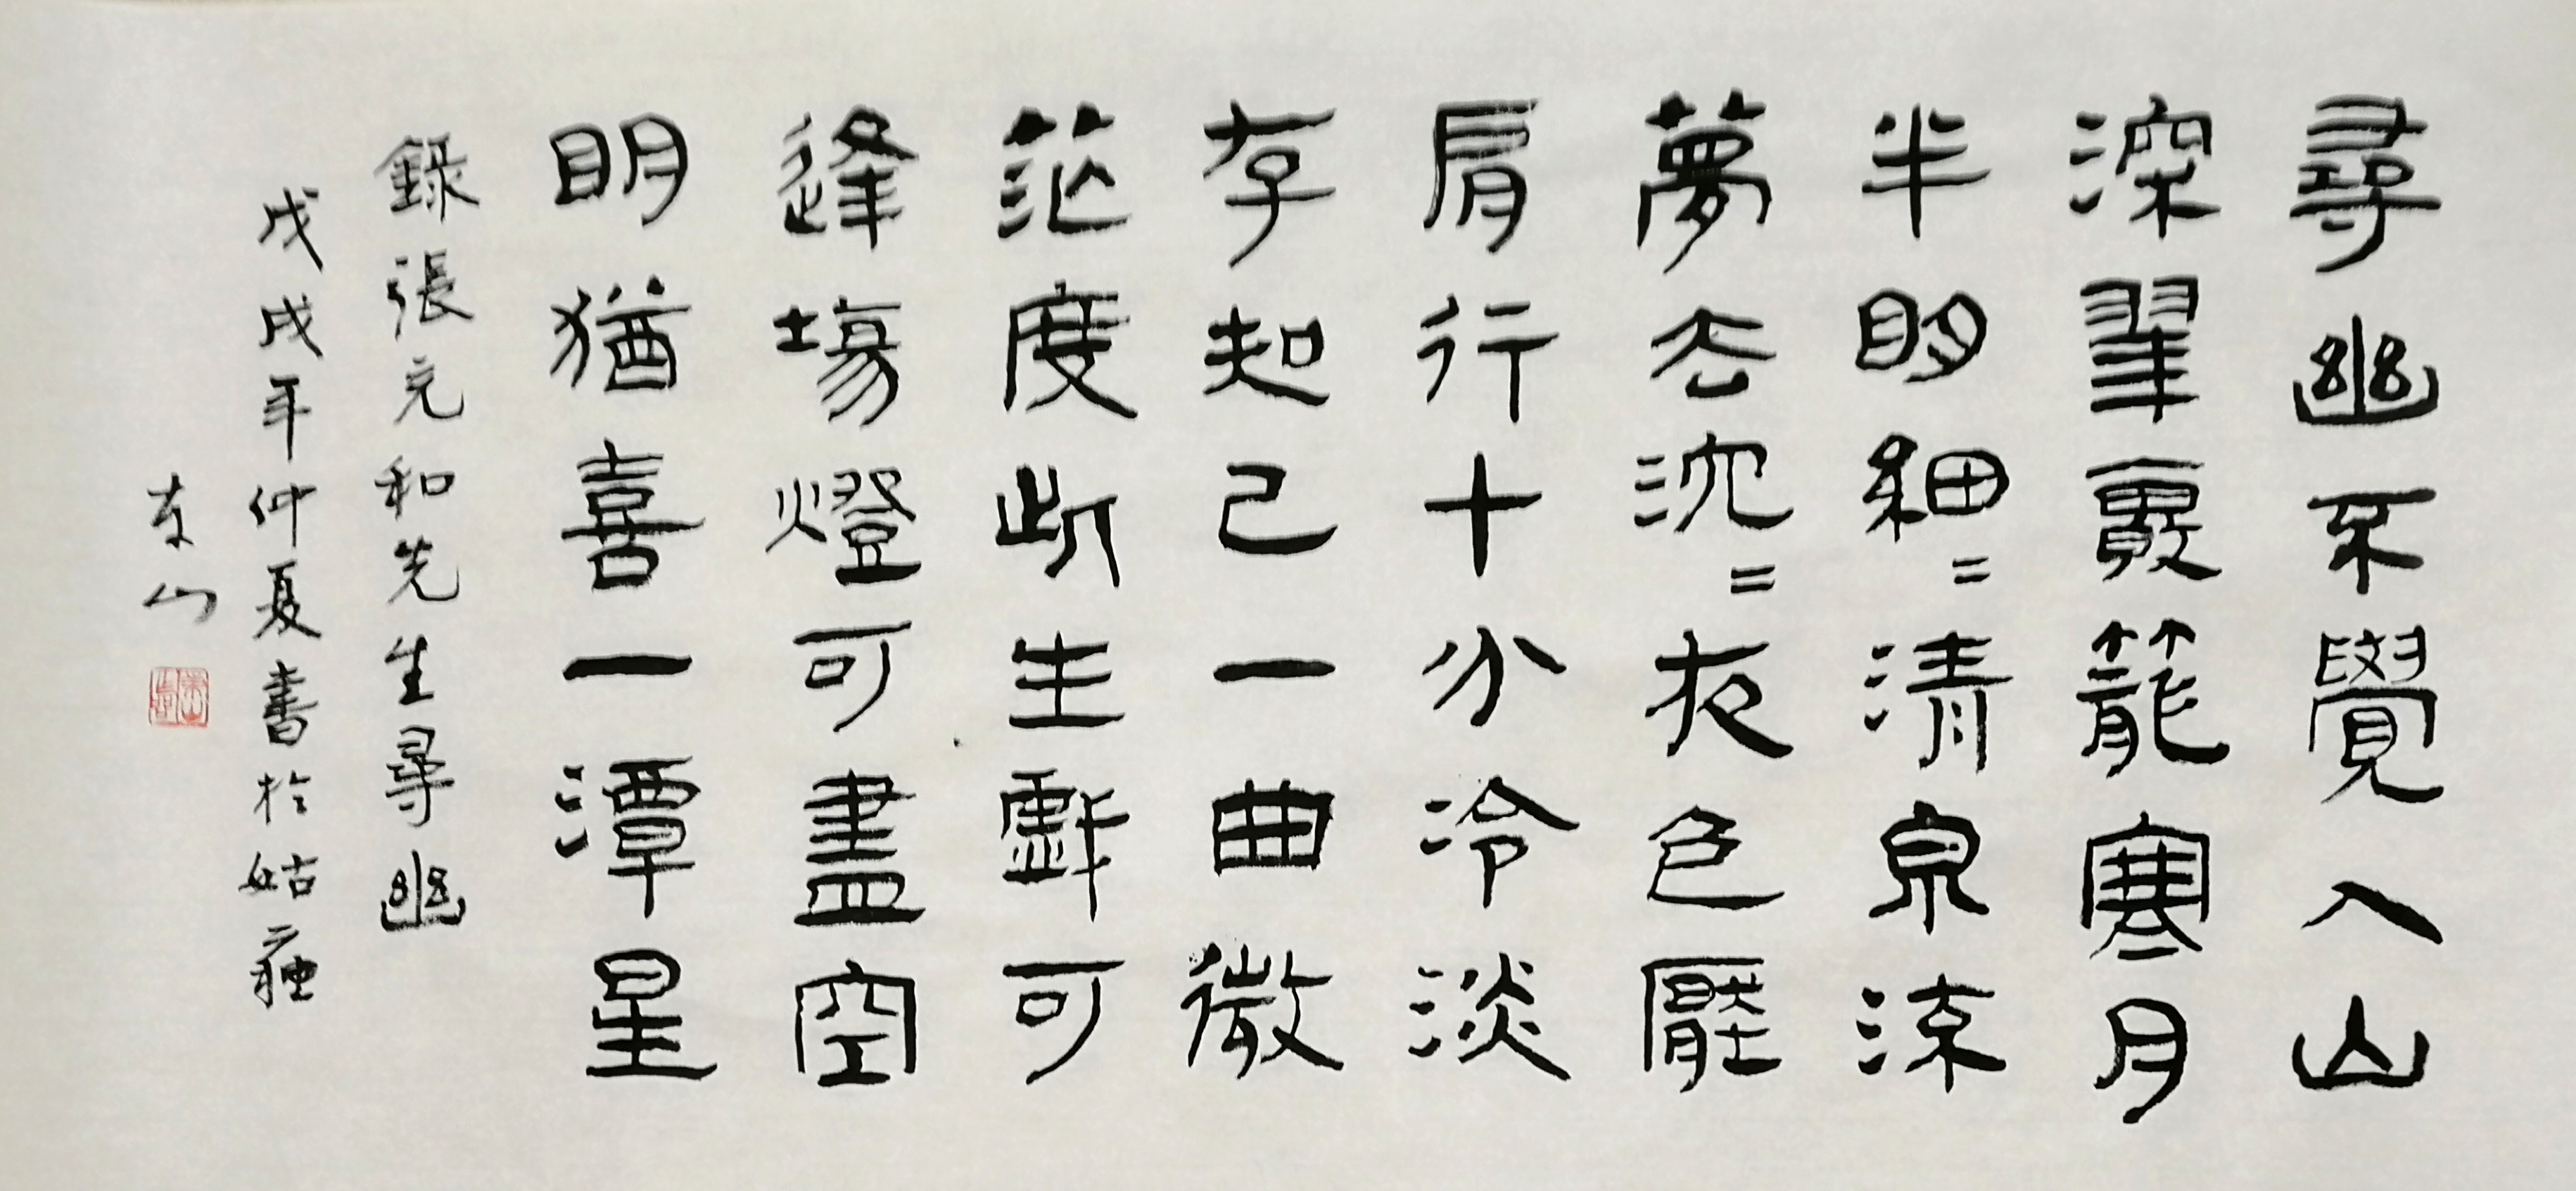 尋幽不覺入山
深翠霧籠寒月
半明細=清泉流
夢去沈=夜色壓
肩行十分冷淡
存知己一曲微
茫度此生戲可
逢場燈可盡空
明猶喜一潭星
錄張充和先生尋幽
戊戌年仲夏書於姑蘇
東山